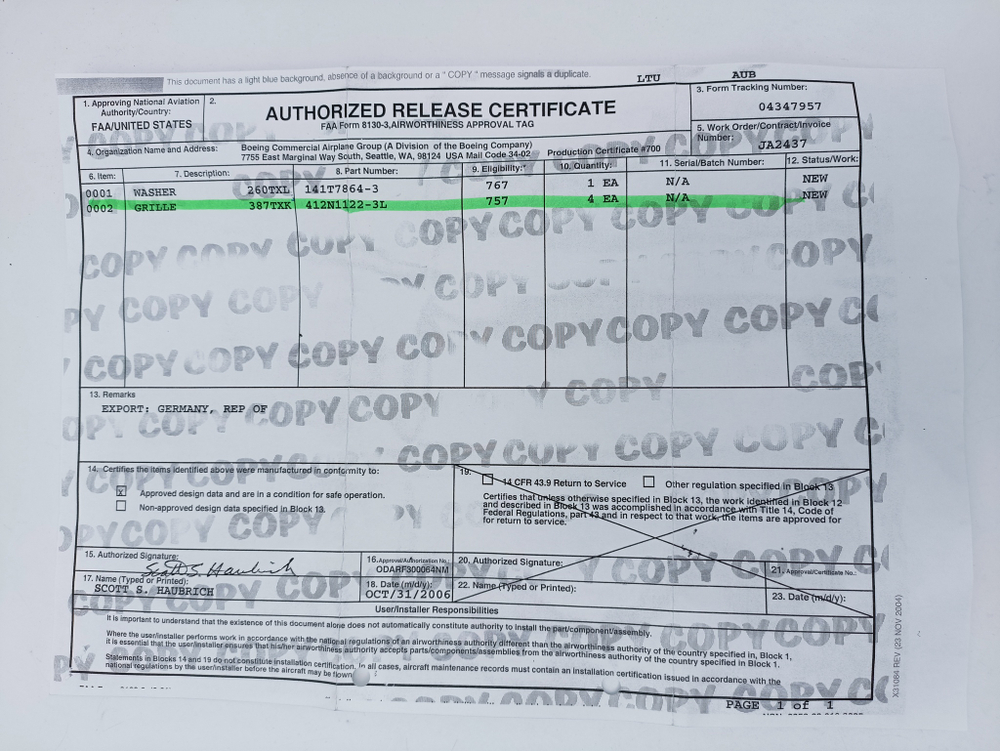 This document has a light blue background, absence of a background or a " COPY " message signals a duplicate.
LTU
AUB
1. Approving National Aviation
Authority/Country:
FAA/UNITED STATES
2.
AUTHORIZED RELEASE CERTIFICATE
FAA Form 8130-3,AIRWORTHINESS APPROVAL TAG
3. Form Tracking Number:
04347957
4. Organization Name and Address:
Boeing Commercial Airplane Group (A Division of the Boeing Company)
7755 East Marginal Way South, Seattle, WA, 98124 USA Mail Code 34-02
Production Certificate #700
5. Work Order/Contract/Invoice
Number:
JA2437
6. Item: 7. Description: 8. Part Number: 9. Eligibility:* 10. Quantity: 11. Serial/Batch Number: 12. Status/Work:
0001 WASHER 260TXL 141T7864-3 767 1 EA N/A NEW
0002 GRILLE 387TXK 412N1122-3L 757 4 EA N/A NEW
13. Remarks
EXPORT: GERMANY, REP OF
14. Certifies the items identified above were manufactured in conformity to:
X Approved design data and are in a condition for safe operation.
Non-approved design data specified in Block 13.
19.
14 CFR 43.9 Return to Service
Other regulation specified in Block 13
Certifies that unless otherwise specified in Block 13, the work identified in Block 12
and described in Block 13 was accomplished in accordance with Title 14, Code of
Federal Regulations, part 43 and in respect to that work, the items are approved for
for return to service.
15. Authorized Signature:
Scott S. Haubrich
16. Approval/Authorization No.:
ODARF300064NM
17. Name (Typed or Printed):
SCOTT S. HAUBRICH
18. Date (m/d/y):
OCT/31/2006
20. Authorized Signature:
21. Approval/Certificate No.:
22. Name (Typed or Printed):
23. Date (m/d/y):
User/Installer Responsibilities
It is important to understand that the existence of this document alone does not automatically constitute authority to install the part/component/assembly.
Where the user/installer performs work in accordance with the national regulations of an airworthiness authority different than the airworthiness authority of the country specified in, Block 1,
it is essential that the user/installer ensures that his/her airworthiness authority accepts parts/components/assemblies from the airworthiness authority of the country specified in, Block 1.
Statements in Blocks 14 and 19 do not constitute installation certification. In all cases, aircraft maintenance records must contain an installation certification issued in accordance with the
national regulations by the user/installer before the aircraft may be flown
PAGE 1 of 1
X31084 REV (23 NOV 2004)
COPY COPY COPY COPY COPY